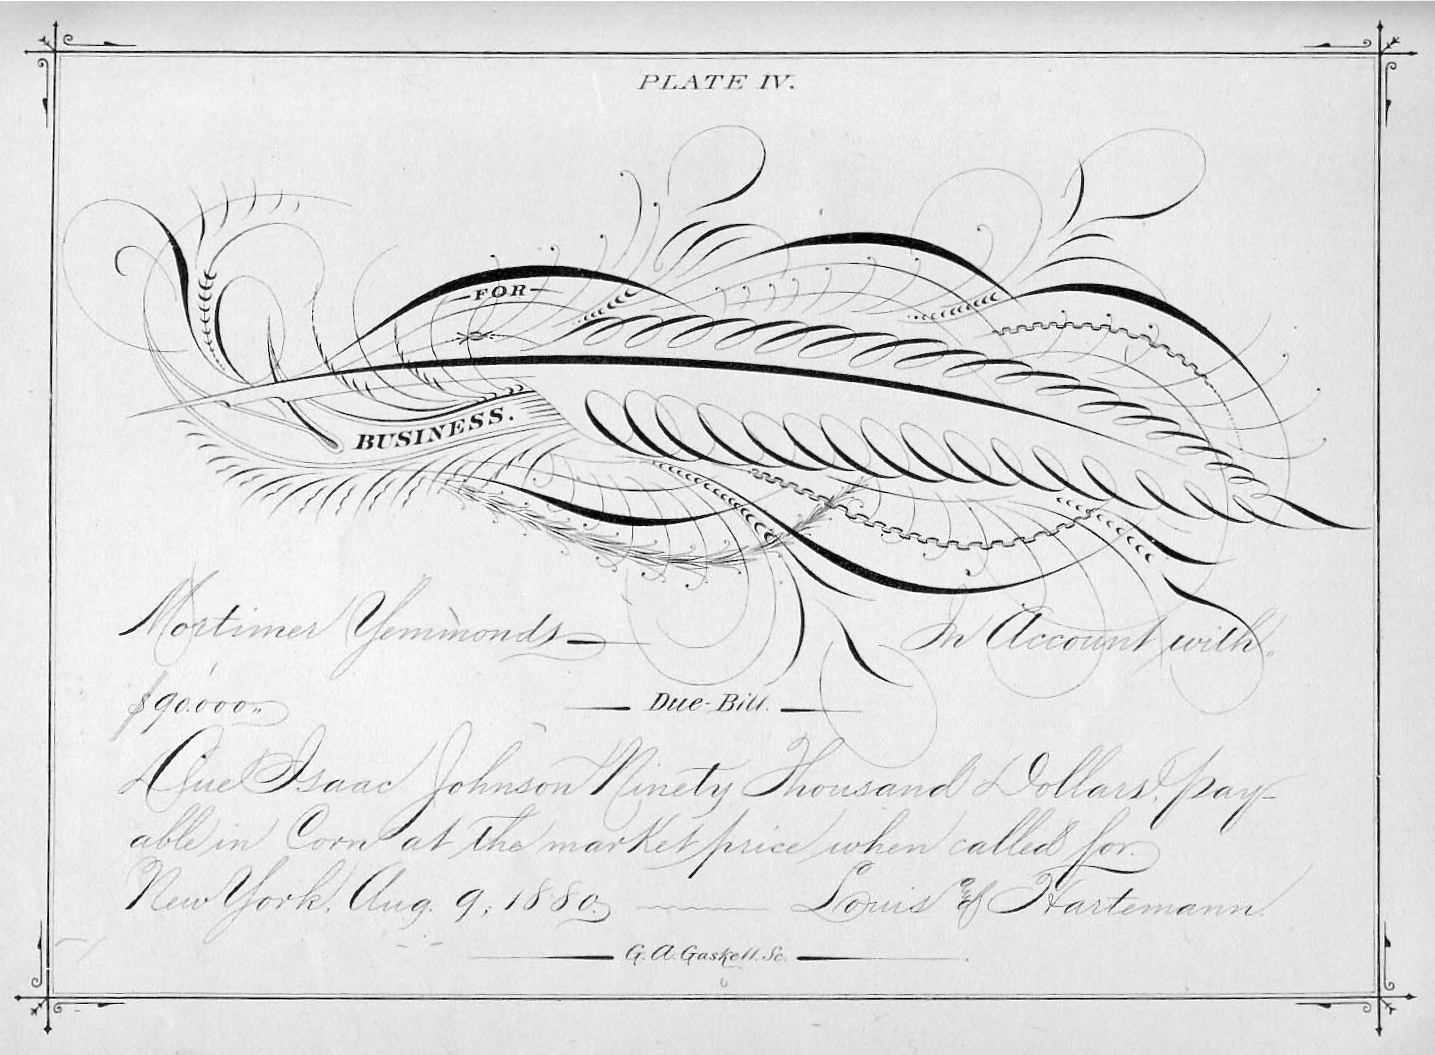 PLATE IV.
FOR
BUSINESS.
Mortimer Yemmonds In Account with
$90.000
Due-Bill.
Due Isaac Johnson Ninety Thousand Dollars, pay-
able in Corn at the market price when called for.
New York, Aug. 9, 1880. Louis Hartemann.
G. A. Gaskell. Sc.